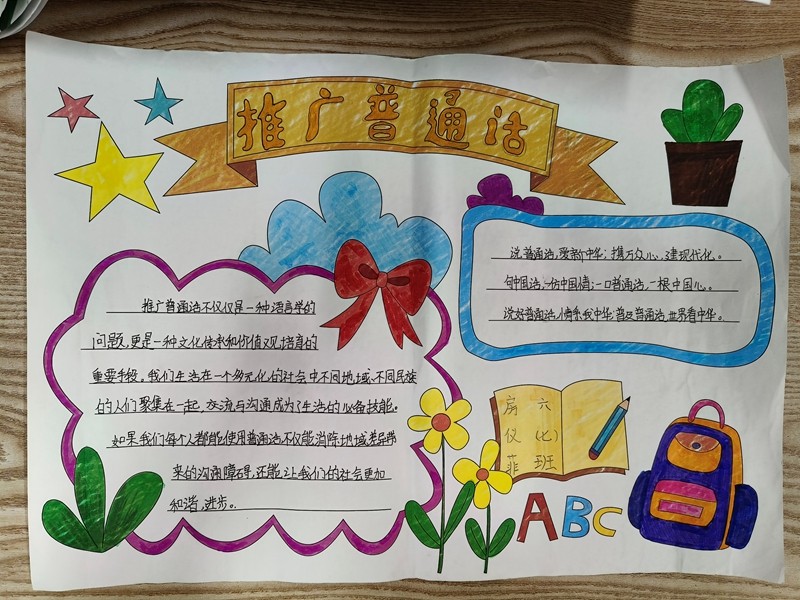 推广普通话
推广普通话不仅仅是一种语言学的
问题,更是一种文化传承和价值观培育的
重要手段。我们生活在一个多元化的社会中不同地域、不同民族
的人们聚集在一起,交流与沟通成为了生活的必备技能。
如果我们每个人都能使用普通话不仅能消除地域差异带
来的沟通障碍,还能让我们的社会更加
和谐,进步。
说普通话,爱新中华;携万众心,建现代化。
句中国话,一份中国情;一口普通话,一根中国心。
说好普通话,情系我中华;普及普通话,世界看中华。
房 六
仪 (七)
菲 班
ABC